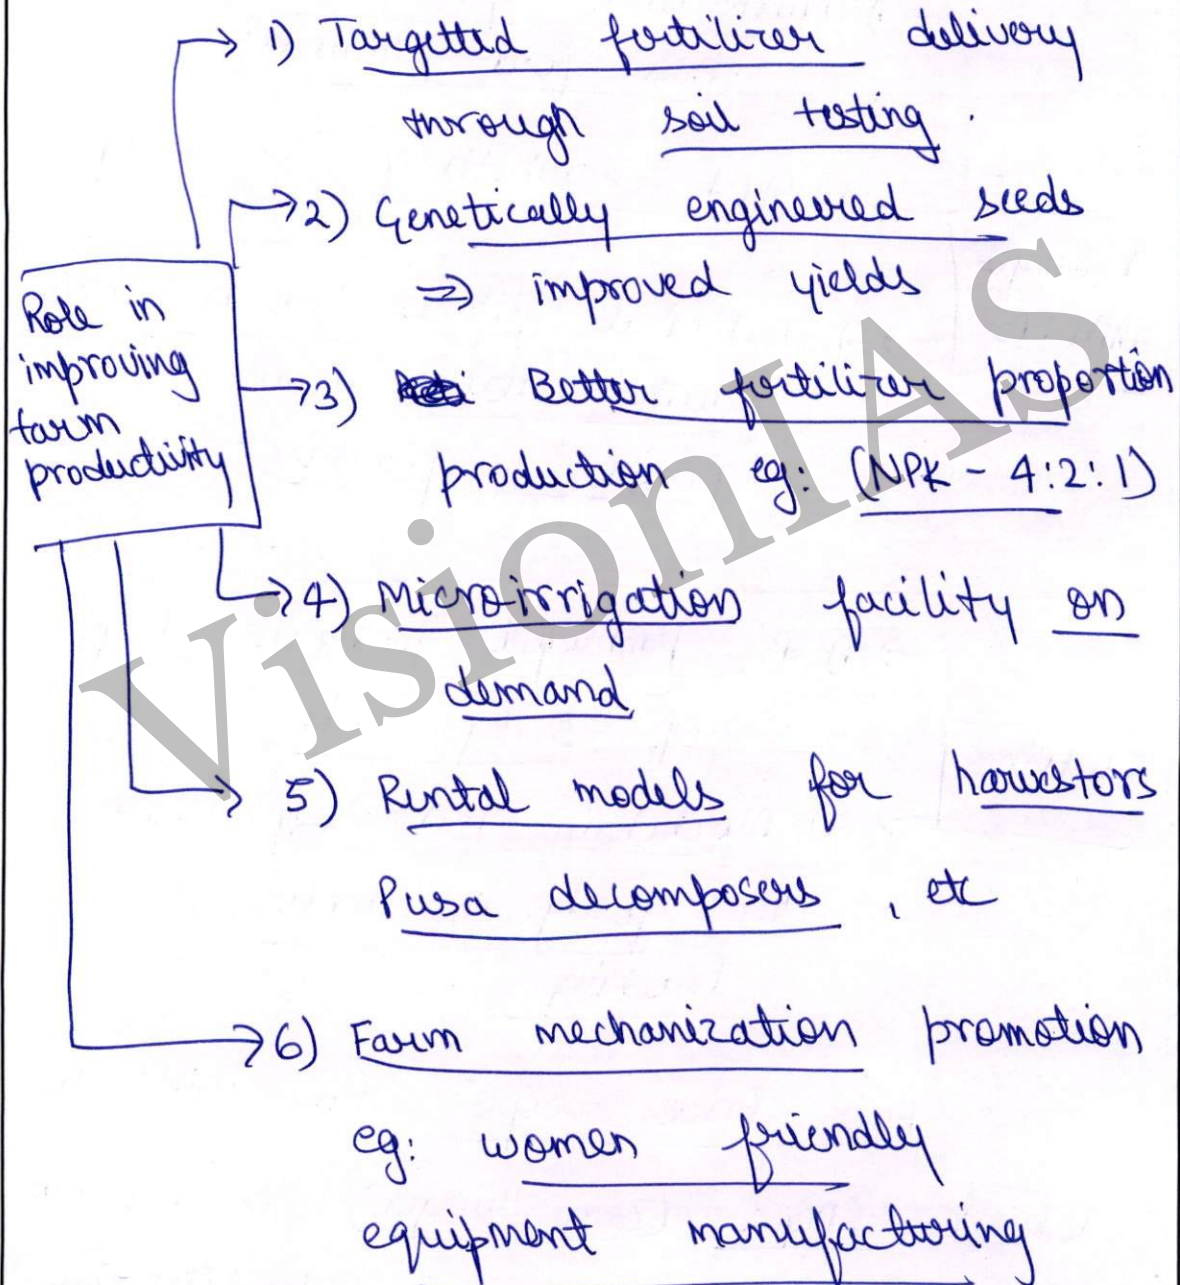 1) Targetted fertilizer delivery
through soil testing.
2) Genetically engineered seeds
⇒ improved yields
Role in
improving
farm
productivity
3) Better fertilizer proportion
production eg: (NPK - 4:2:1)
4) Microirrigation facility on
demand
5) Rental models for harvestors
Pusa decomposers, etc
6) Farm mechanization promotion
eg: women friendly
equipment manufacturing
VisionIAS